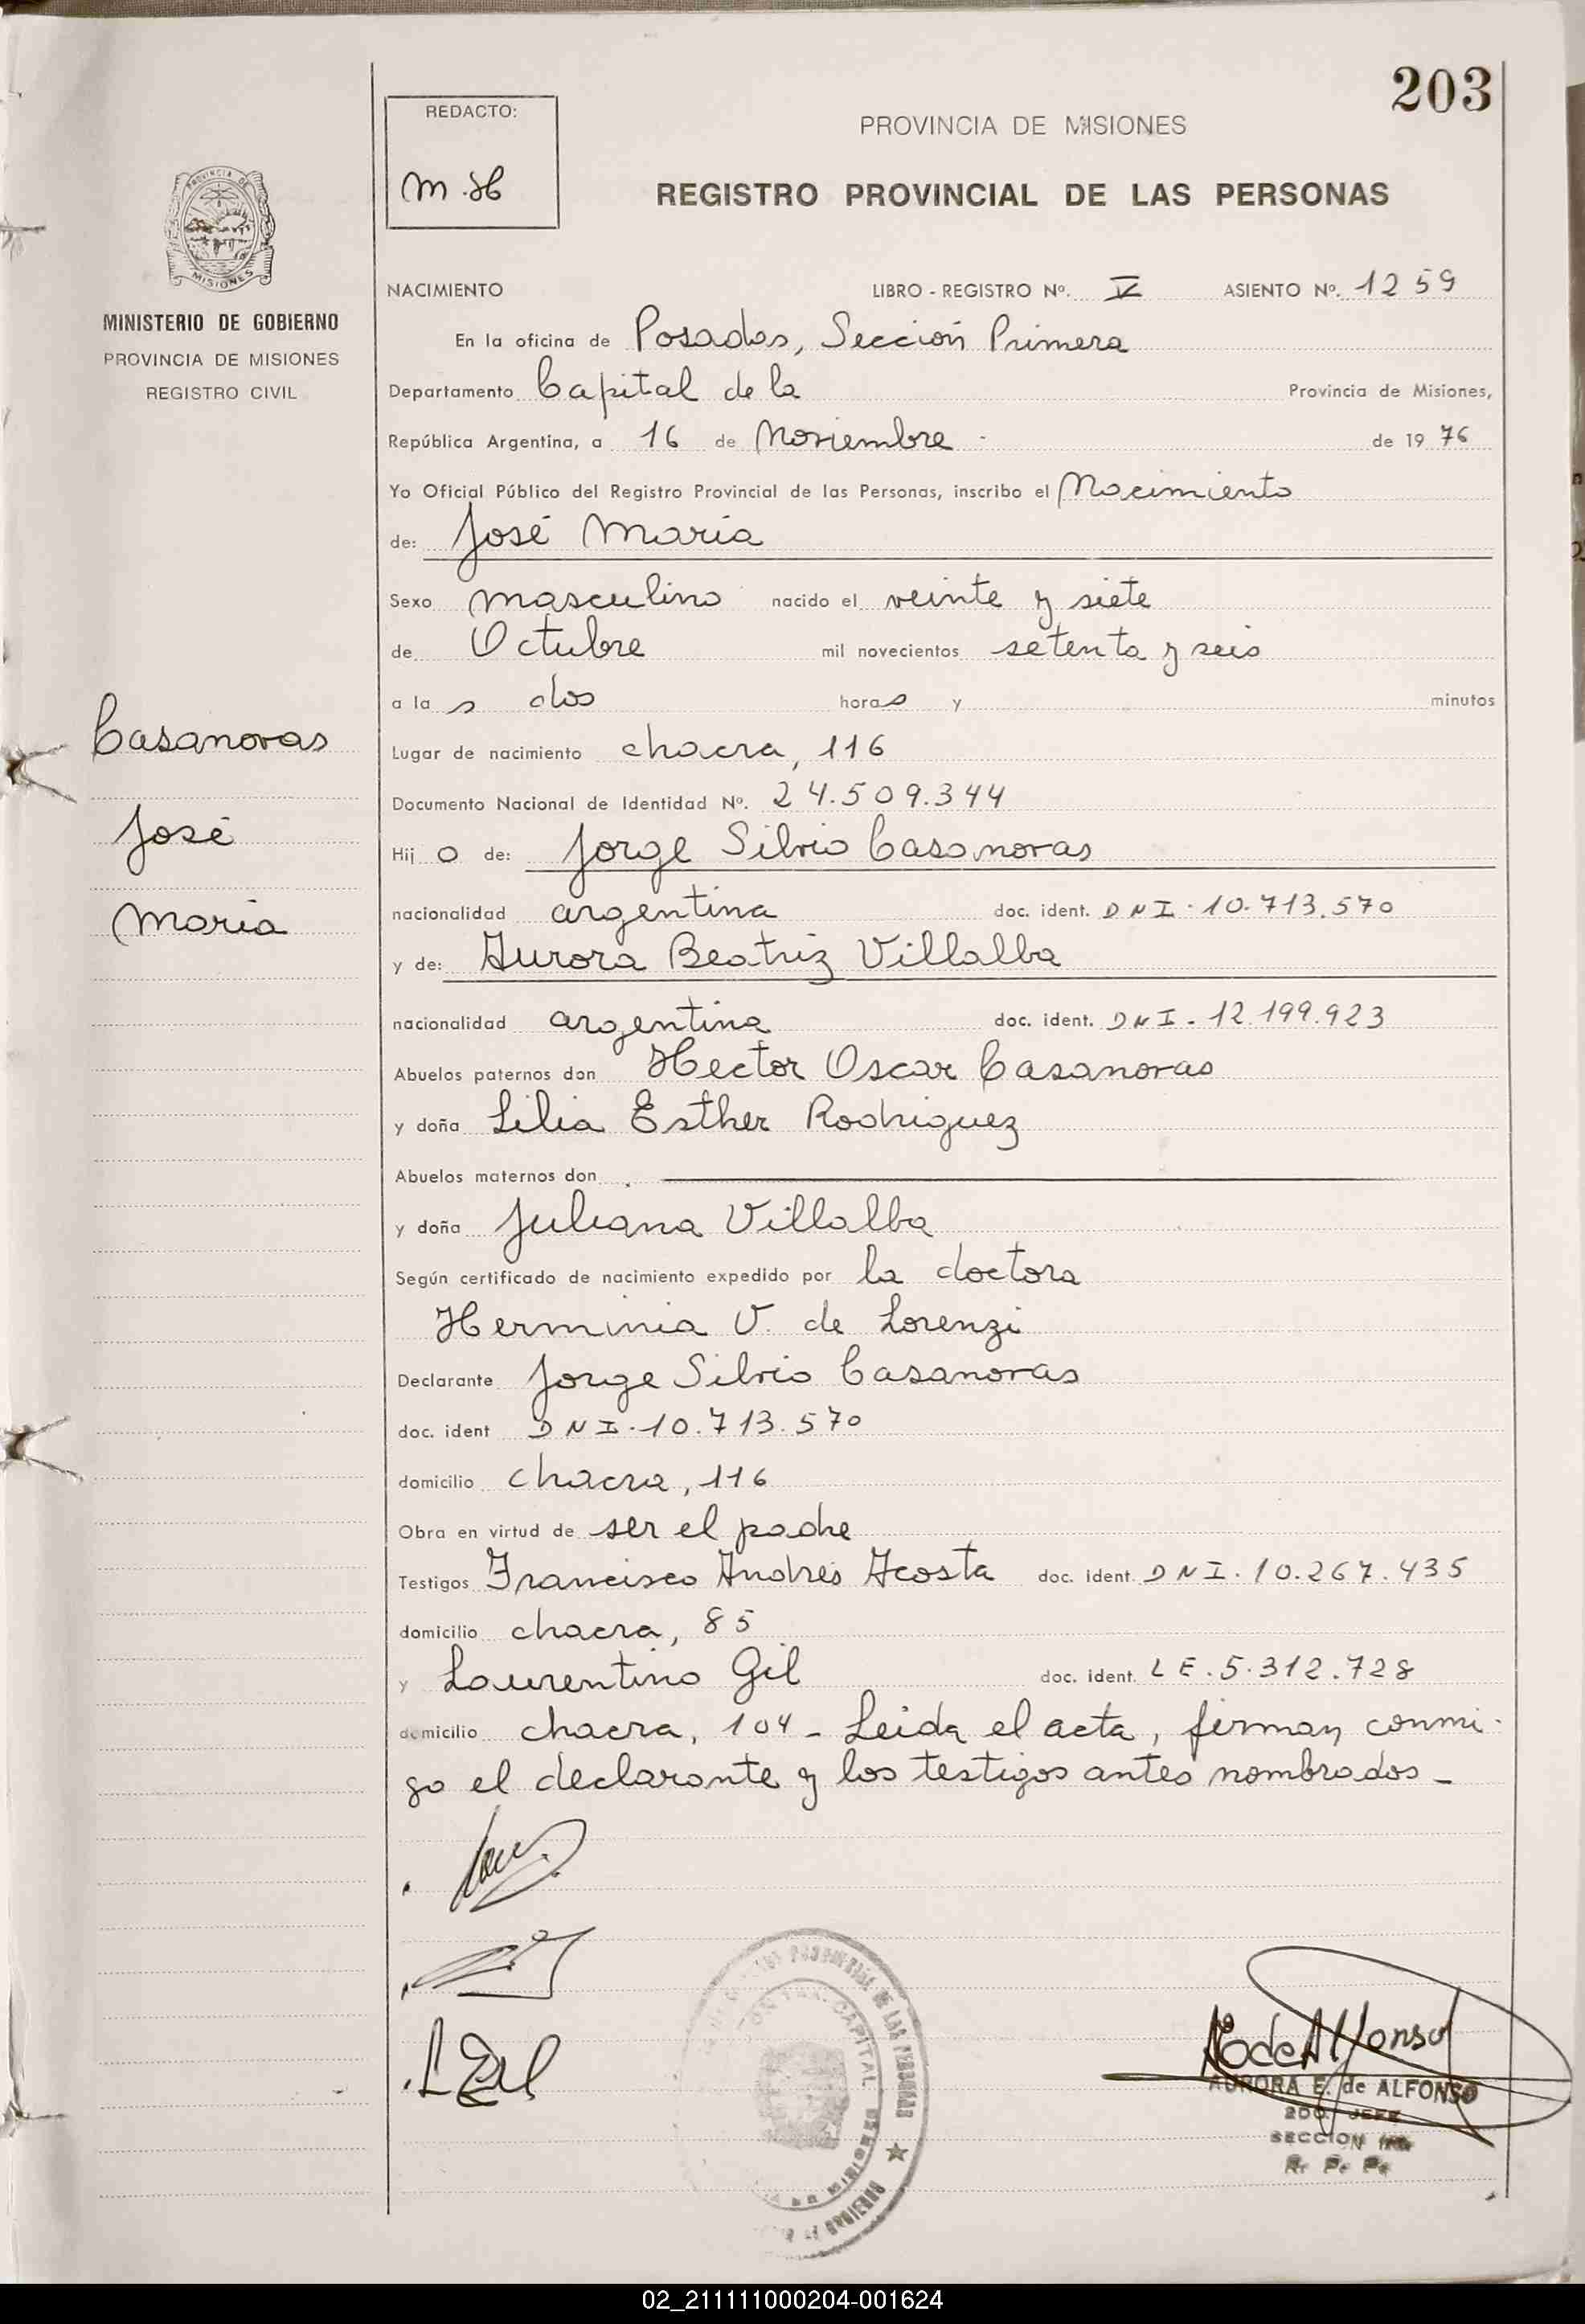 203
REDACTO:
M.H
PROVINCIA DE MISIONES
REGISTRO PROVINCIAL DE LAS PERSONAS
PROVINCIA DE
MISIONES
MINISTERIO DE GOBIERNO
PROVINCIA DE MISIONES
REGISTRO CIVIL
NACIMIENTO LIBRO - REGISTRO Nº. V ASIENTO Nº. 1259
En la oficina de Posadas, Sección Primera
Departamento Capital de la Provincia de Misiones,
República Argentina, a 16 de Noviembre - de 19 76
Yo Oficial Público del Registro Provincial de las Personas, inscribo el Nacimiento
de: José María
Sexo masculino nacido el veinte y siete
de Octubre mil novecientos setenta y seis
a la s dos horas y minutos
Casanovas
José
María
Lugar de nacimiento chacra, 116
Documento Nacional de Identidad Nº. 24.509.344
Hij o de: Jorge Silvio Casanovas
nacionalidad argentina doc. ident. DNI - 10.713.570
y de: Aurora Beatriz Villalba
nacionalidad argentina doc. ident. DNI - 12.199.923
Abuelos paternos don Hector Oscar Casanovas
y doña Lilia Esther Rodriguez
Abuelos maternos don
y doña Juliana Villalba
Según certificado de nacimiento expedido por la doctora
Herminia V. de Lorenzi
Declarante Jorge Silvio Casanovas
doc. ident DNI - 10.713.570
domicilio chacra, 116
Obra en virtud de ser el padre
Testigos Francisco Andrés Acosta doc. ident. DNI. 10.267.435
domicilio chacra, 85
y Laurentino Gil doc. ident. LE. 5.312.728
domicilio chacra, 104 - Leida el acta, firman conmi-
go el declarante y los testigos antes nombrados -
L Gil
PROVINCIAL DE LAS PERSONAS
CAPITAL
AURORA E. de ALFONSO
2DO. JEFE
SECCION 1ra
R. P. P.
02_211111000204-001624